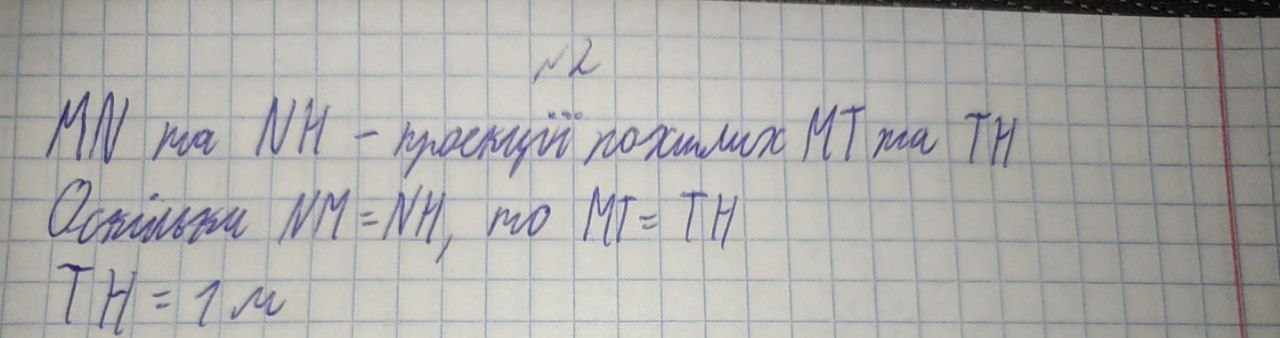 №2
MN та NH - проекції похилих MT та TH
Оскільки NM = NH, то MT = TH
TH = 1 м